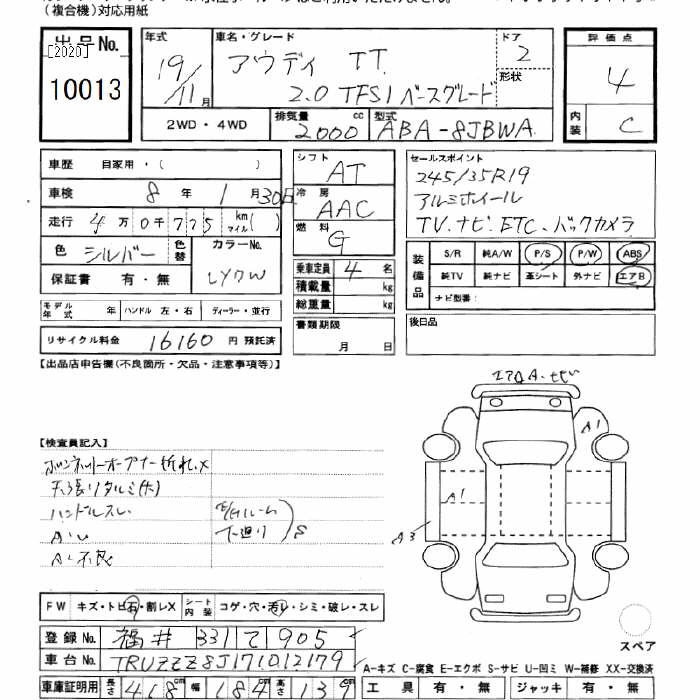 (複合機)対応用紙
出品No.
[2020]
10013
年式
19/11月
車名・グレード
アウディ TT
2.0 TFSI ベースグレード
ドア
2
形状
評価点
4
内装
C
2WD・4WD
排気量 2000 cc
型式 ABA-8JBWA
車歴 自家用・( )
車検 8年 1月 30日
走行 4万0千775 km マイル( )
色 シルバー 色替
カラーNo. LY7W
保証書 有・無
モデル年式 年 ハンドル 左・右 ディーラー・並行
リサイクル料金 16160 円 預託済
シフト AT
冷房 AAC
燃料 G
乗車定員 4 名
積載量 kg
総重量 kg
書類期限
月 日
セールスポイント
245/35R19
アルミホイール
TV.ナビ.ETC.バックカメラ
装備品 S/R 純A/W P/S P/W ABS
純TV 純ナビ 革シート 外ナビ エアB
ナビ型番:
後日品
【出品店申告欄(不良箇所・欠品・注意事項等)】
【検査員記入】
ボンネットオープナー折れ.X
天張りタルミ(大)
ハンドルスレ
下廻り S
A1
A1
A3
FW キズ・トビ石・割レX シート内装 コゲ・穴・汚レ・シミ・破レ・スレ
登録No. 福井 331 て 905
車台No. TRUZZZ8J171012179
スペア
A-キズ C-腐食 E-エクボ S-サビ U-凹ミ W-補修 XX-交換済
車庫証明用 長さ 418cm 幅 184cm 高さ 139cm
工具 有・無 ジャッキ 有・無